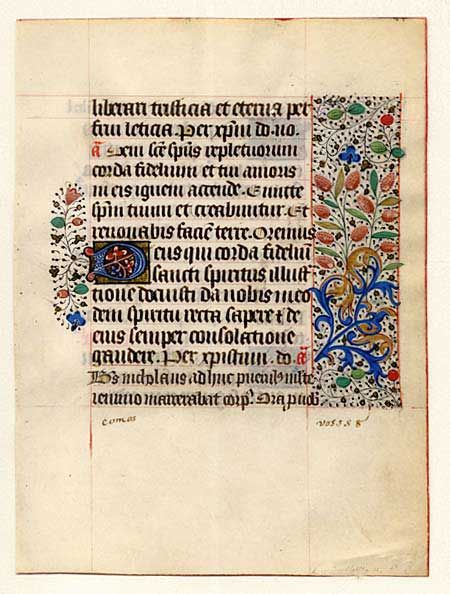 liberari tristicia et eterna per
frui leticia Per xp̄m do. no.
a Veni sc̄e sp̄us repletuorum
corda fidelium et tui amoris
in eis ignem accende. Emitte
sp̄m tuum et creabuntur. Et
renovabis faciē terre. Oremus
Deus qui corda fideliū
sancti spiritus illust
tione docuisti da nobis in eo
dem spiritu recta sapere ⁊ de
eius semper consolatione
gaudere. Per xpistum. do. a
Bs nicholaus adhuc puerulus
ieiunio macerabat corpꝰ. Ora p nob
comos